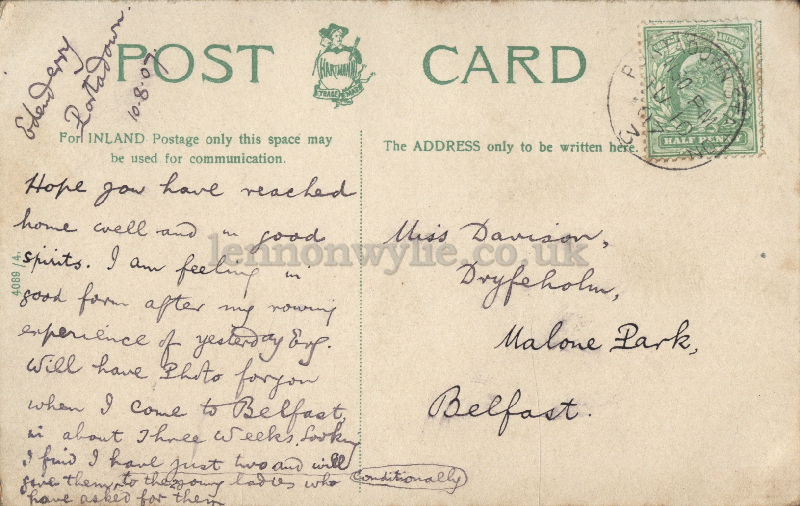 Edenderry
Portadown.
10.8.07
POST CARD
HARTMANN
TRADE MARK
For INLAND Postage only this space may
be used for communication.
The ADDRESS only to be written here.
HALF PENNY
PORTADOWN
Hope you have reached
home well and in good
spirits. I am feeling in
good form after my rowing
experience of yesterday Evg.
Will have Photo for you
when I come to Belfast,
in about Three Weeks.
I find I have just two and will
give them, to the young ladies who conditionally
have asked for them
4089/4.
Miss Davison,
Dryfeholm,
Malone Park,
Belfast.
lennonwylie.co.uk